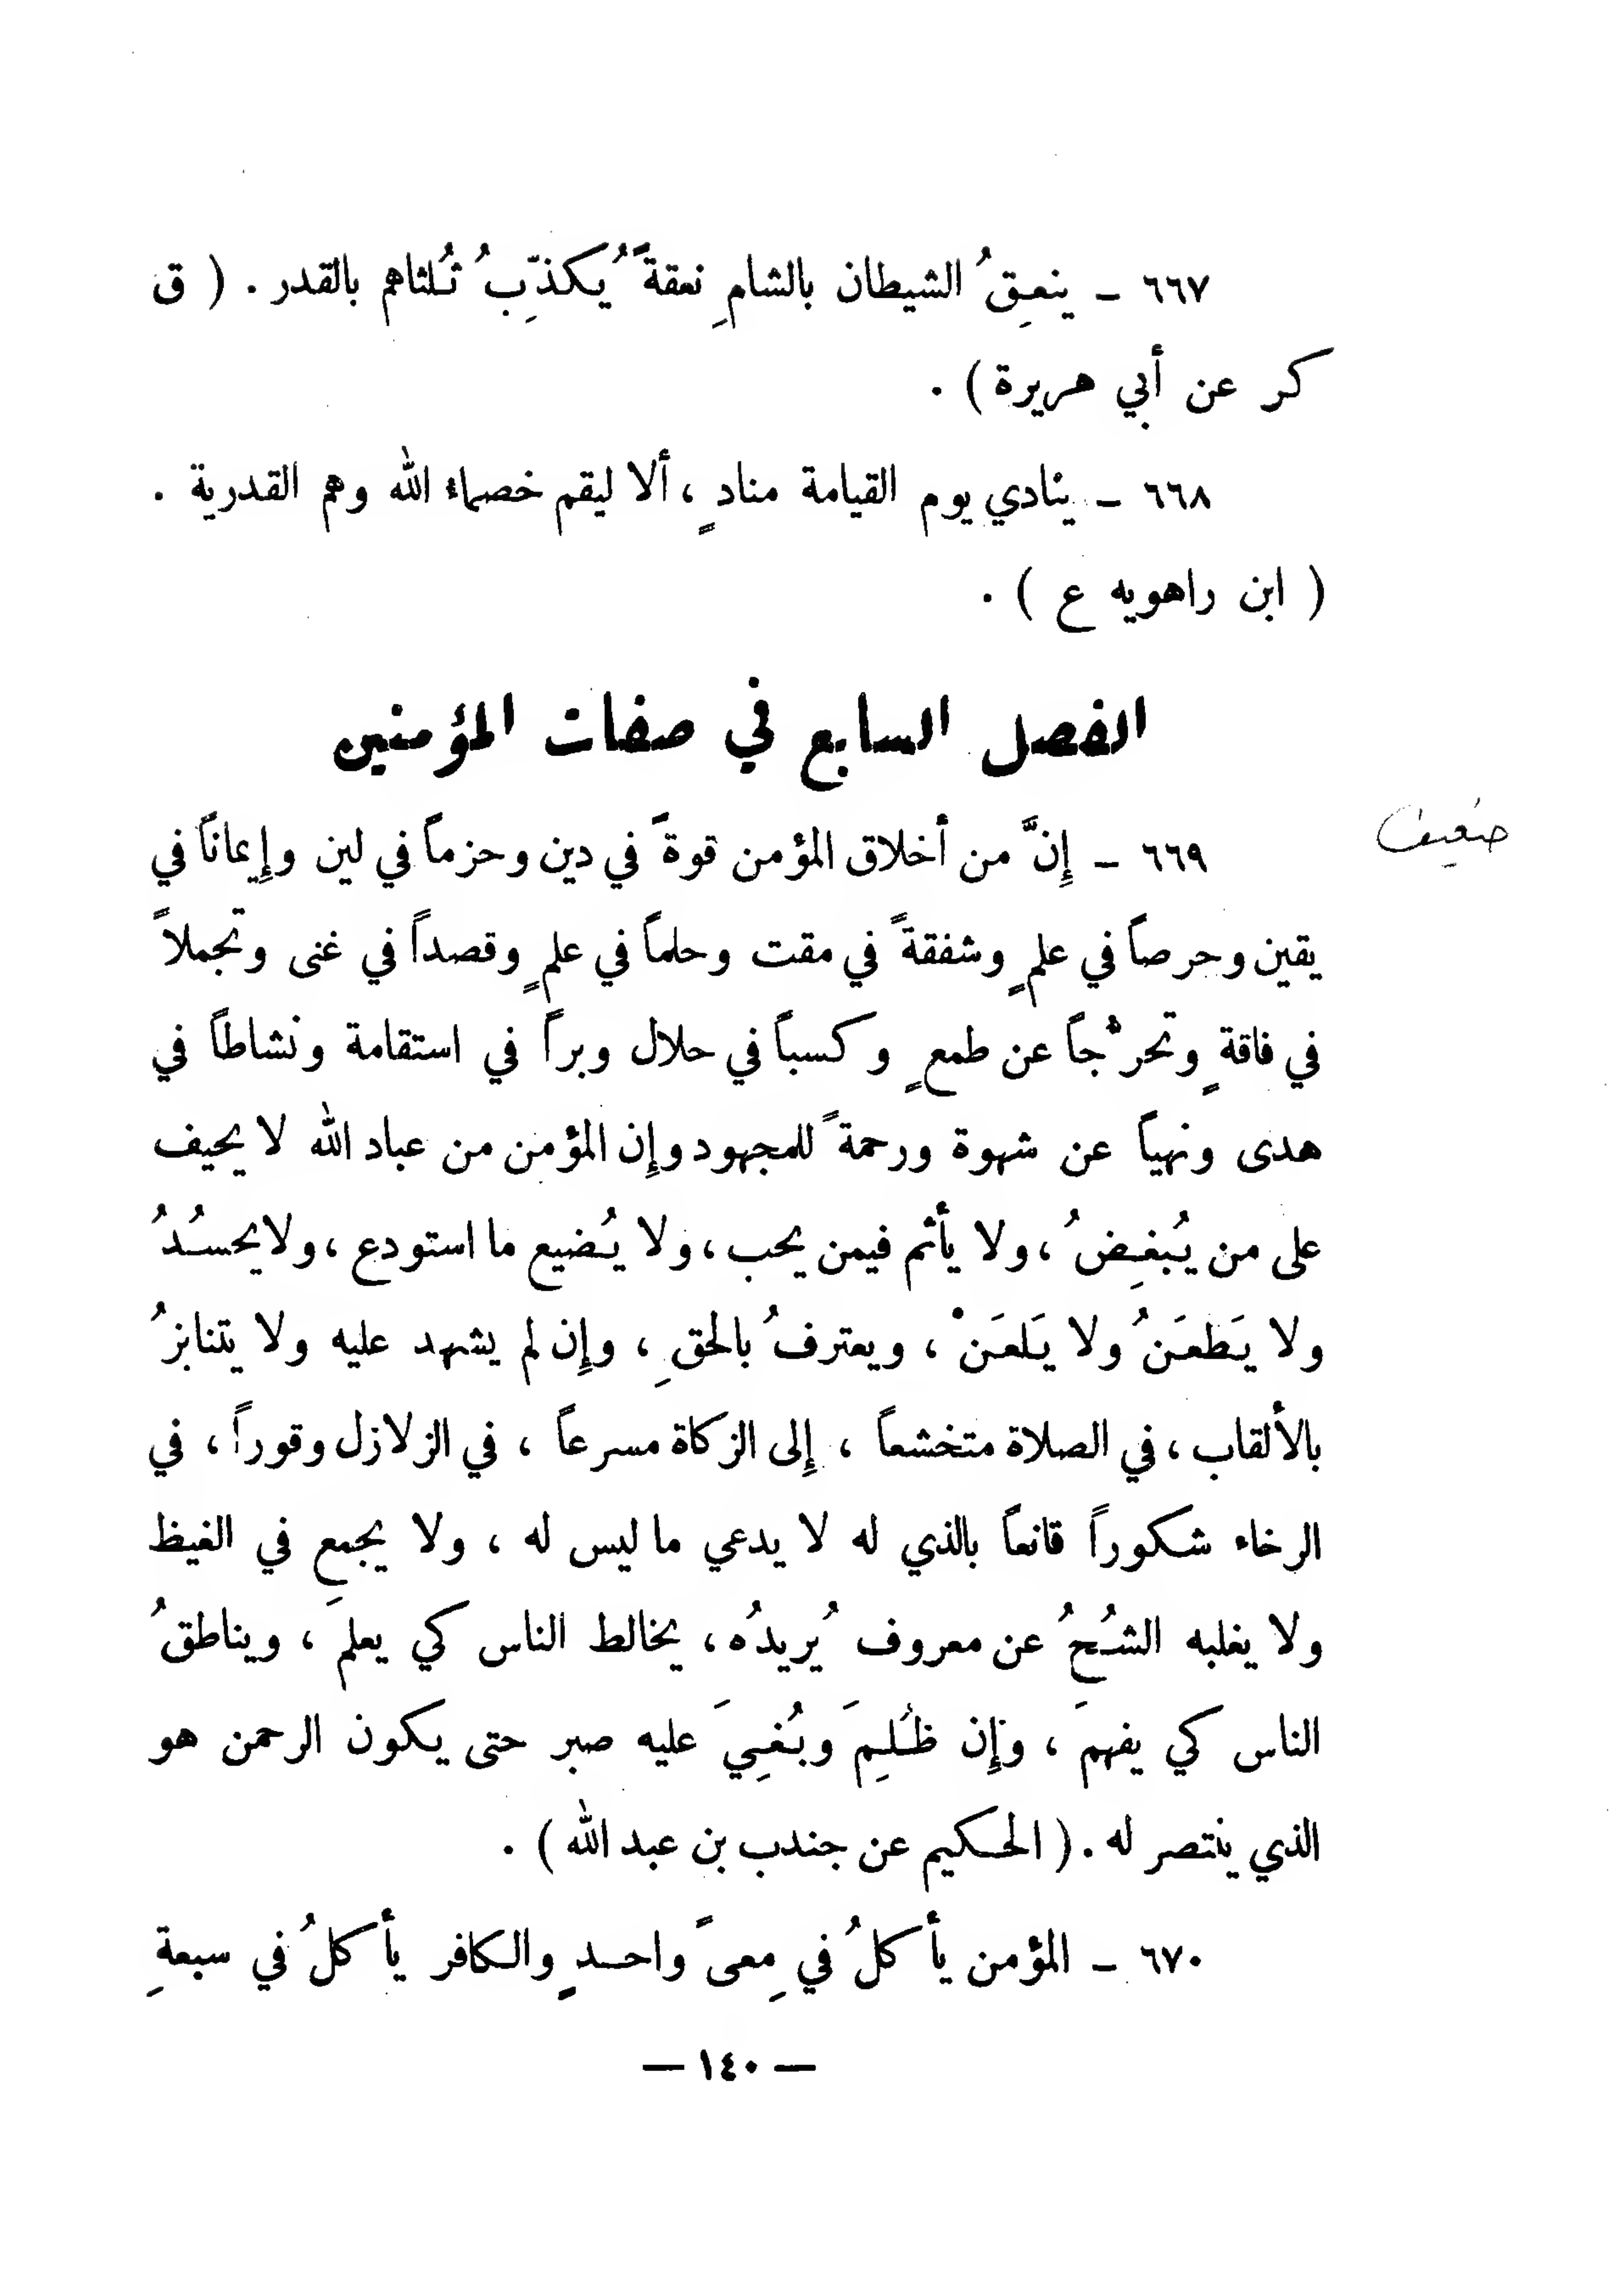 ٦٦٧ ـ ينعِقُ الشيطان بالشامِ نعقةً يُكذّبُ ثُلثاهم بالقدر . ( ق
كر عن أبي هريرة ) .
٦٦٨ ـ ينادي يوم القيامة منادٍ ، ألا ليقم خصماء الله وهم القدرية .
( ابن راهويه ع ) .
الفصل السابع في صفات المؤمنين
ضعيف
٦٦٩ ـ إِنَّ من أخلاق المؤمن قوةً في دين وحزماً في لين وإِيماناً في
يقين وحرصاً في علمٍ وشفقةً في مقت وحلماً في علمٍ وقصداً في غنى وتجملاً
في فاقةٍ وتحرُّجاً عن طمعٍ وكسباً في حلال وبراً في استقامة ونشاطاً في
هدى ونهياً عن شهوة ورحمةً للمجهود وإِن المؤمن من عباد الله لا يحيف
على من يُبغِضُ ، ولا يأثم فيمن يحب ، ولا يُضيع ما استودع ، ولا يحسُدُ
ولا يَطعَنُ ولا يَلعَنْ ، ويعترفُ بالحقِ ، وإِن لم يشهد عليه ولا يتنابزُ
بالألقاب ، في الصلاة متخشعاً ، إِلى الزكاة مسرعاً ، في الزلازل وقوراً ، في
الرخاء شكوراً قانعاً بالذي له لا يدعي ما ليس له ، ولا يجمعِ في الغيظ
ولا يغلبه الشُحُ عن معروف يُريدُه ، يخالط الناس كي يعلمَ ، ويناطقُ
الناس كي يفهمَ ، وإِن ظُلِمَ وبُغِيَ عليه صبر حتى يكون الرحمن هو
الذي ينتصر له . ( الحكيم عن جندب بن عبد الله ) .
٦٧٠ ـ المؤمن يأكلُ في مِعىً واحدٍ والكافر يأكلُ في سبعةِ
— ١٤٠ —